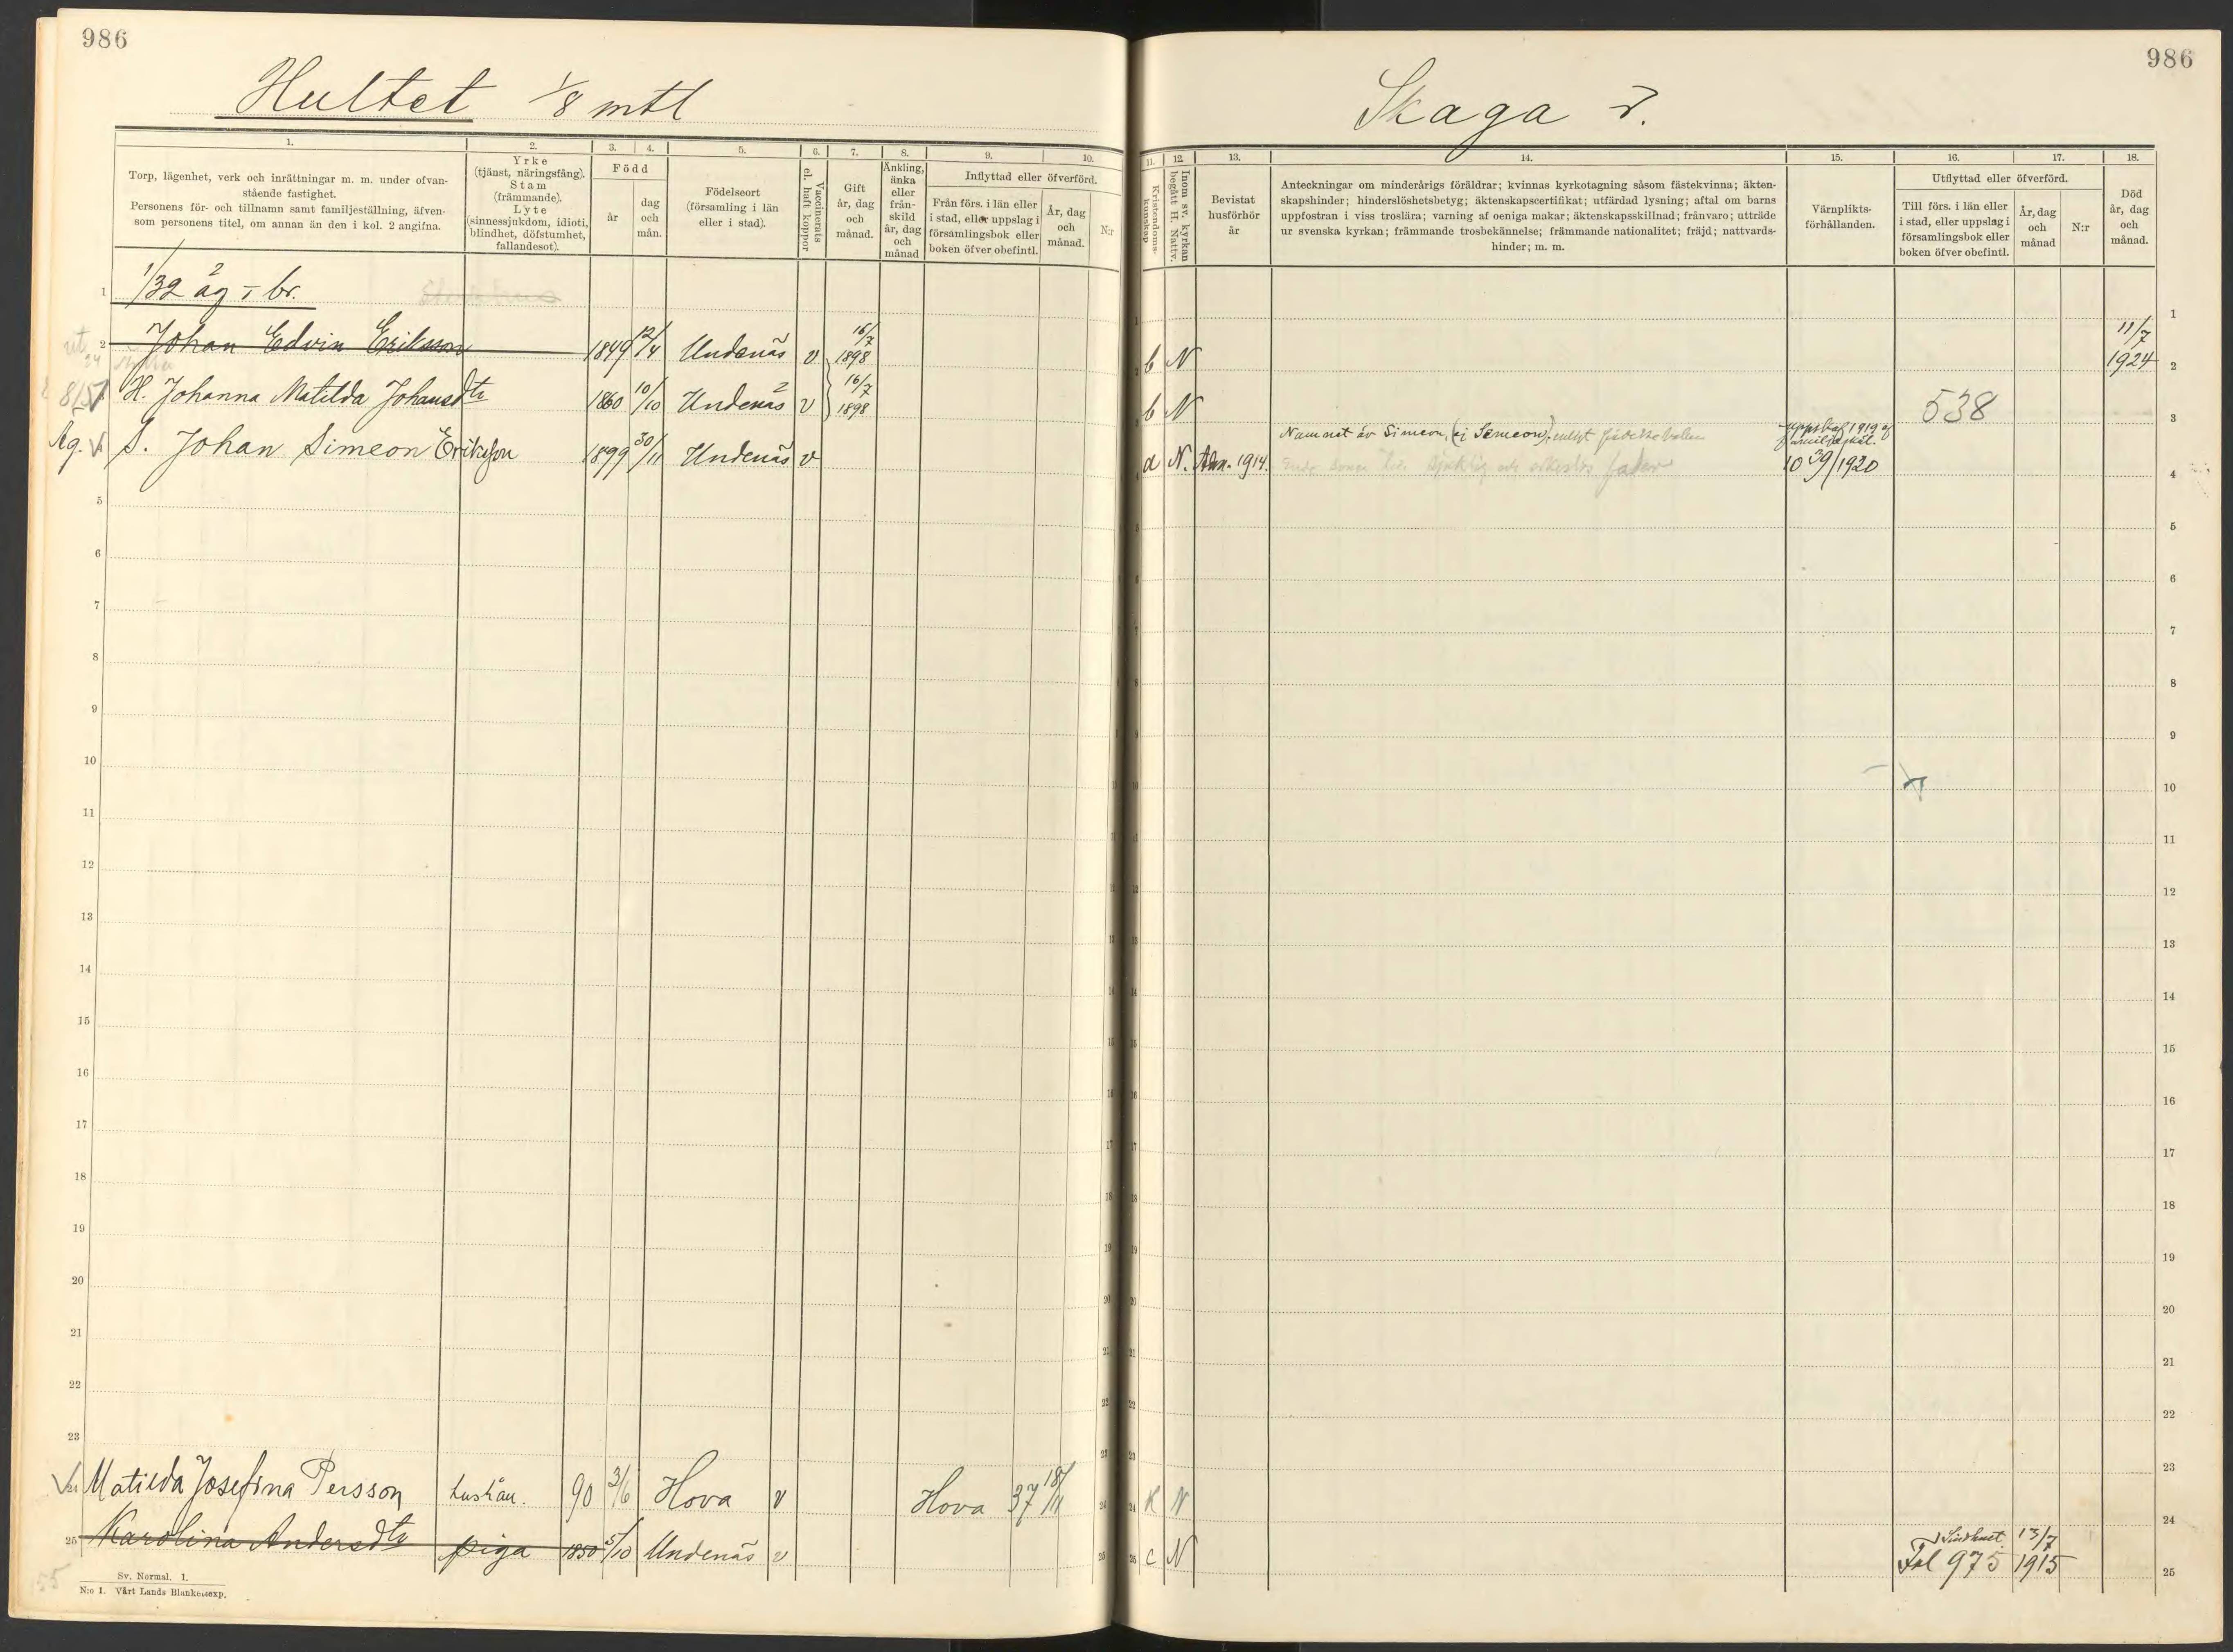 986
986
Hultet 1/8 mtl
Skaga r.
1.
Torp, lägenhet, verk och inrättningar m. m. under ofvan-
stående fastighet.
Personens för- och tillnamn samt familjeställning, äfven-
som personens titel, om annan än den i kol. 2 angifna.
2.
Yrke
(tjänst, näringsfång).
Stam
(främmande).
Lyte
(sinnessjukdom, idioti,
blindhet, döfstumhet,
fallandesot).
3. 4.
Född
år
dag
och
mån.
5.
Födelseort
(församling i län
eller i stad).
6.
Vaccinerats
el. haft koppor
7.
Gift
år, dag
och
månad.
8.
Änkling,
änka
eller
från-
skild
år, dag
och
månad
9. 10.
Inflyttad eller öfverförd.
Från förs. i län eller
i stad, eller uppslag i
församlingsbok eller
boken öfver obefintl.
År, dag
och
månad.
N:r
11.
Kristendoms-
kunskap
12.
Inom sv. kyrkan
begått H. Nattv.
13.
Bevistat
husförhör
år
14.
Anteckningar om minderårigs föräldrar; kvinnas kyrkotagning såsom fästekvinna; äkten-
skapshinder; hinderslöshetsbetyg; äktenskapscertifikat; utfärdad lysning; aftal om barns
uppfostran i viss troslära; varning af oeniga makar; äktenskapsskillnad; frånvaro; utträde
ur svenska kyrkan; främmande trosbekännelse; främmande nationalitet; fräjd; nattvards-
hinder; m. m.
15.
Värnplikts-
förhållanden.
16. 17.
Utflyttad eller öfverförd.
Till förs. i län eller
i stad, eller uppslag i
församlingsbok eller
boken öfver obefintl.
År, dag
och
månad
N:r
18.
Död
år, dag
och
månad.
1 1/32 äg - br. 1
2 Johan Edvin Eriksson 1849 12/4 Undenäs v 16/7 1898 b N 11/7 1924 2
8/57 H. Johanna Matilda Johansdtr 1860 10/10 Undenäs v 16/7 1898 b N 538 3
Äg. S. Johan Simeon Eriksson 1899 30/11 Undenäs v d N. Adm. 1914. Namnet är Simeon, (ej Semeon), enligt födelseboken uppskof 1919 af familjeskäl. 10 39/1920 4
5 5
6 6
7 7
8 8
9 9
10 10
11 11
12 12
13 13
14 14
15 15
16 16
17 17
18 18
19 19
20 20
21 21
22 22
23 23
Matilda Josefina Persson hushån. 90 3/6 Hova v Hova 37 18/11 24 K N 24
25 Karolina Andersdtr piga 1850 5/10 Undenäs v c N Fol 975 13/7 1915 25
Sv. Normal. 1.
N:o 1. Vårt Lands Blankettexp.